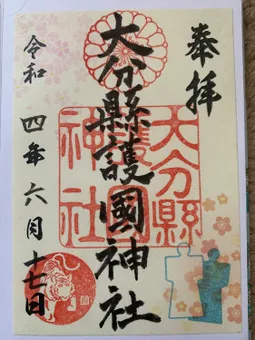 奉拝
大分縣護國神社
令和四年六月十七日
大分縣
護國
神社